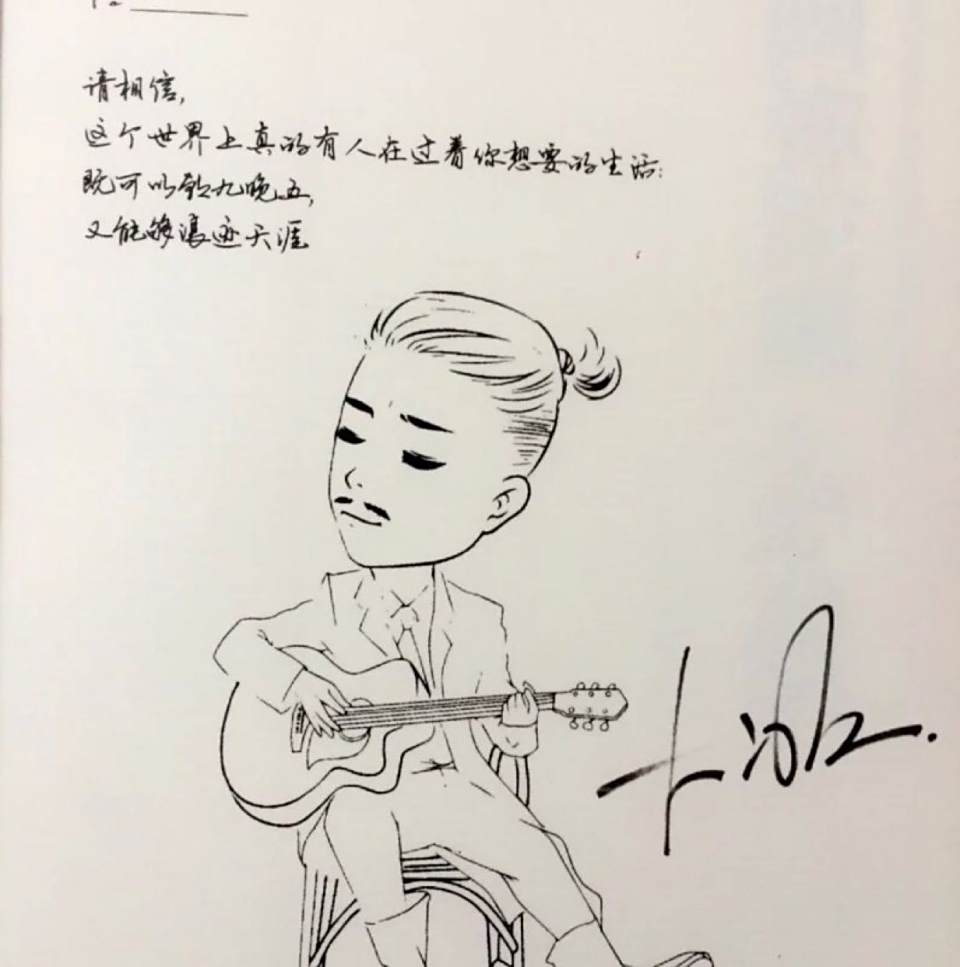 请相信,
这个世界上真的有人在过着你想要的生活:
既可以朝九晚五,
又能够浪迹天涯
大冰.